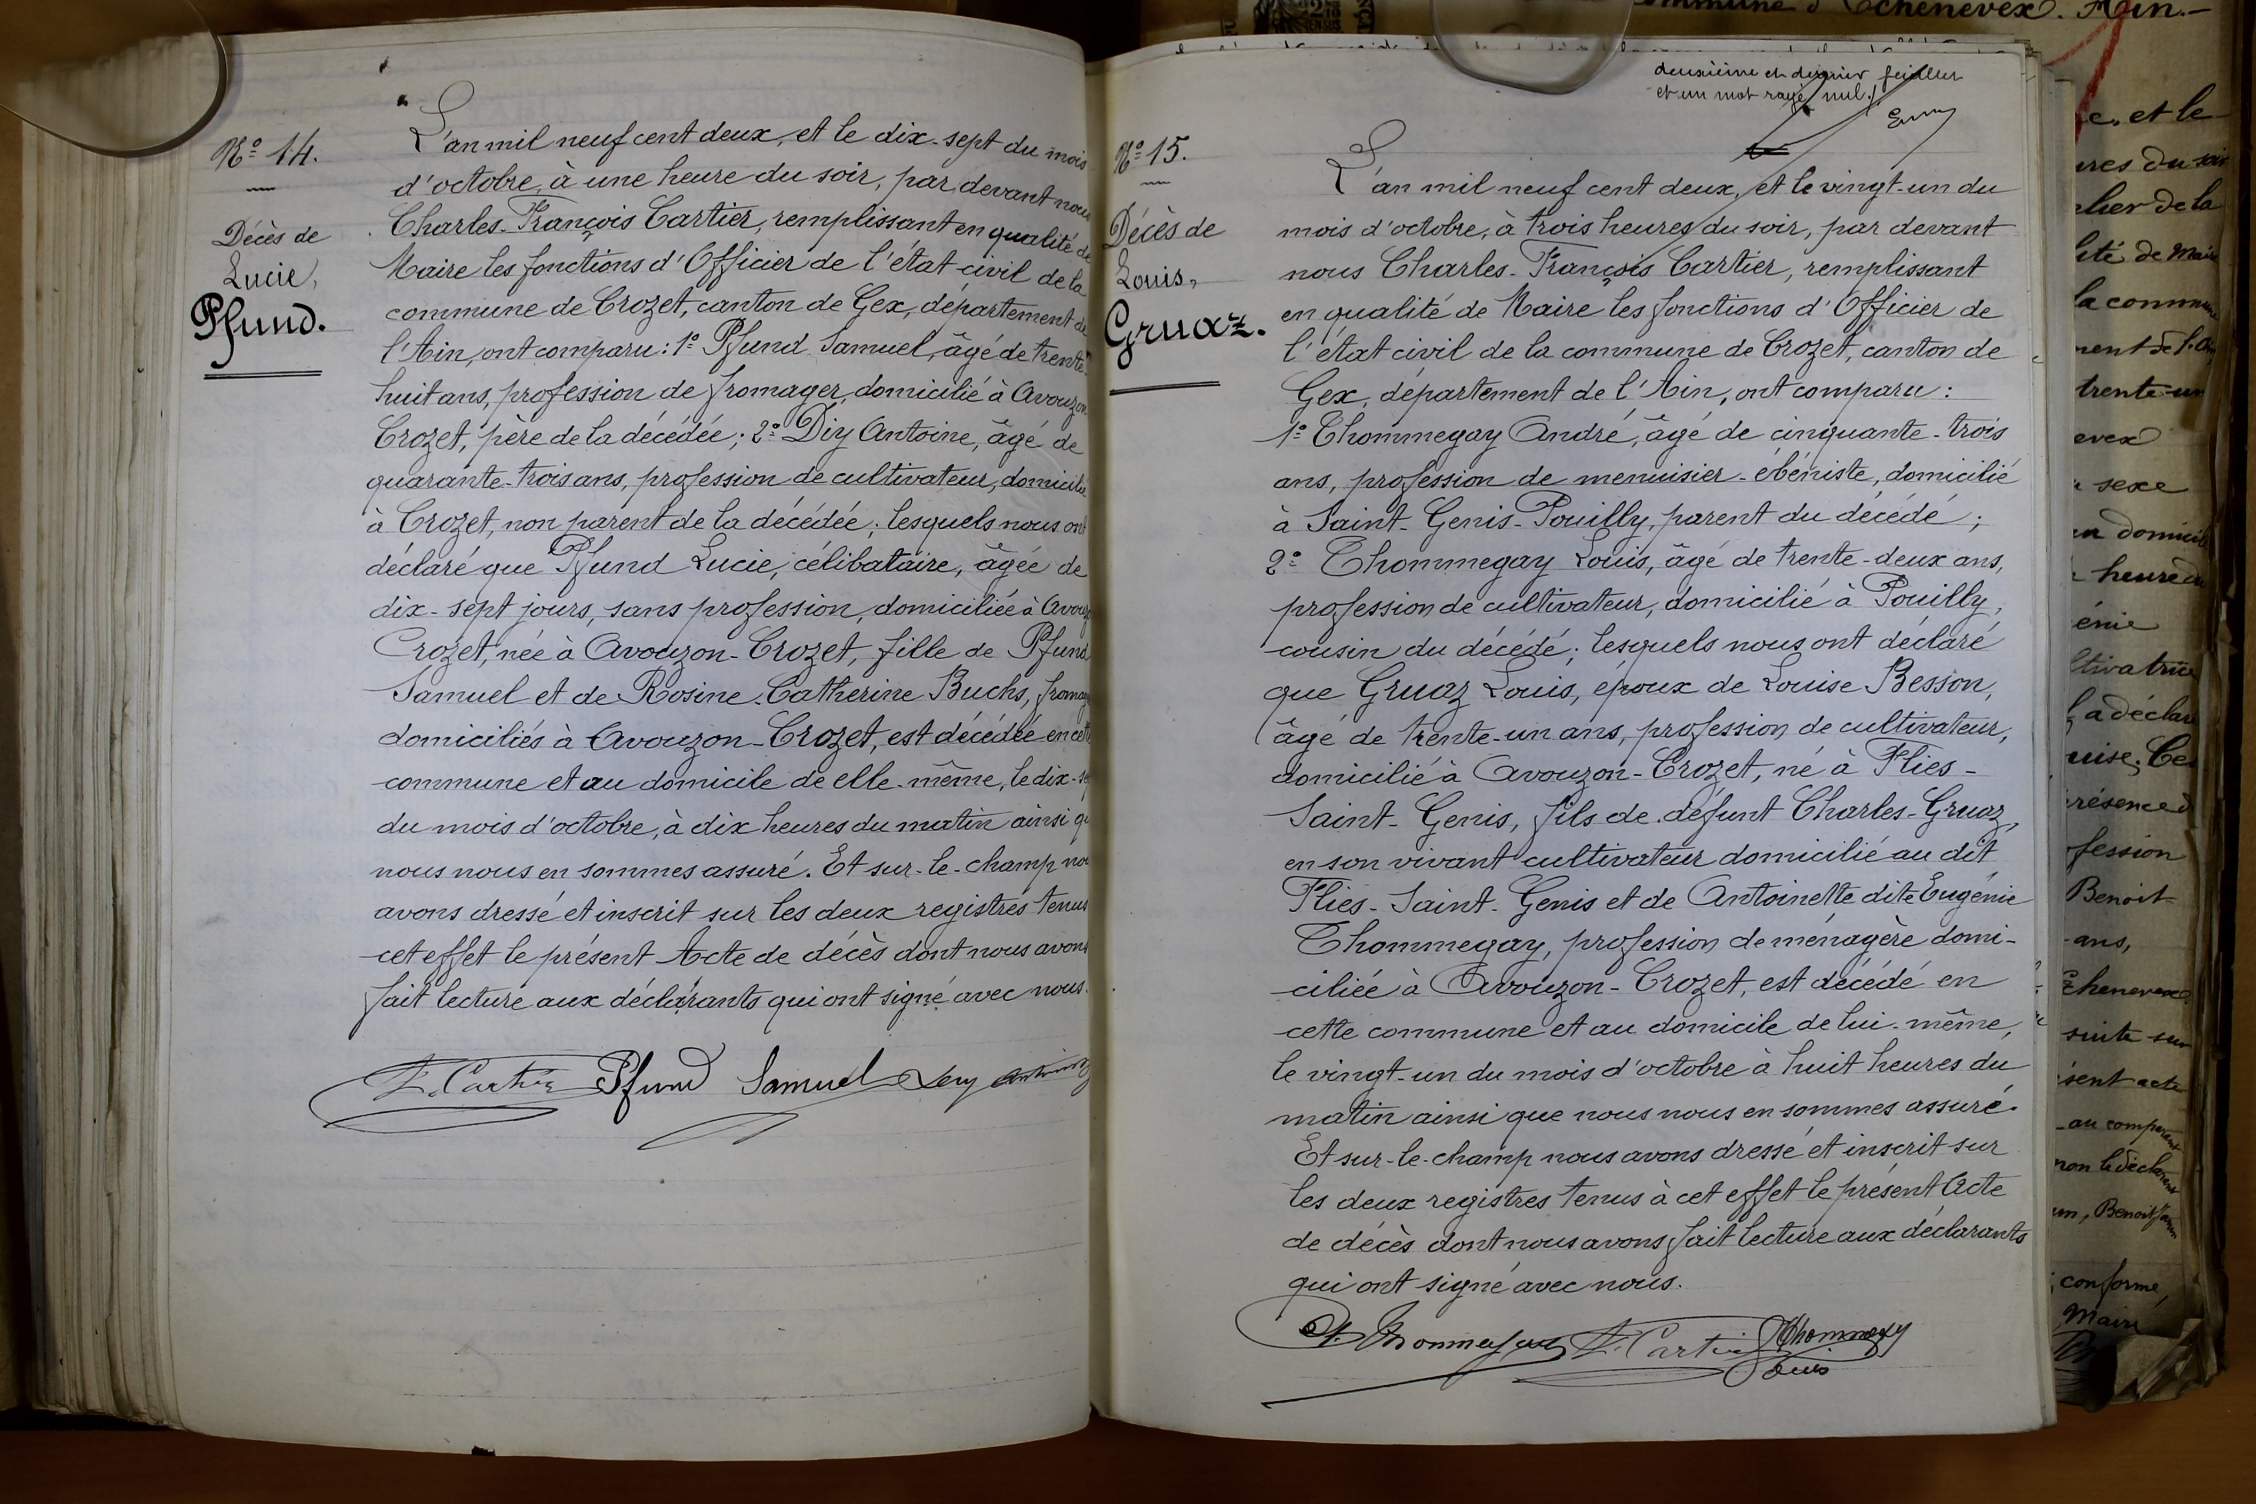 Nº 14.
Décès de
Lucie,
Pfund.
L'an mil neuf cent deux, et le dix-sept du mois
d'octobre, à une heure du soir, par devant nous
Charles-François Cartier, remplissant en qualité de
Maire les fonctions d'Officier de l'état civil de la
commune de Crozet, canton de Gex, département de
l'Ain, ont comparu: 1º Pfund Samuel, âgé de trente-
huit ans, profession de fromager, domicilié à Avouzon
Crozet, père de la décédée; 2º Diy Antoine, âgé de
quarante-trois ans, profession de cultivateur, domicilié
à Crozet, non parent de la décédée; lesquels nous ont
déclaré que Pfund Lucie, célibataire, âgée de
dix-sept jours, sans profession, domiciliée à
Crozet, née à Avouzon-Crozet, fille de Pfund
Samuel et de Rosine-Catherine Buchs,
domiciliés à Avouzon-Crozet, est décédée en
commune et au domicile de elle-même, le dix-
du mois d'octobre, à dix heures du matin ainsi
nous nous en sommes assuré. Et sur-le-champ
avons dressé et inscrit sur les deux registres tenus
cet effet le présent Acte de décès dont nous avons
fait lecture aux déclarants qui ont signé avec nous.
F. Cartier Pfund Samuel Antoine
deuxième et dernier feuillet
et un mot rayé nul.
Nº 15.
Décès de
Louis,
Gruaz.
L'an mil neuf cent deux, et le vingt-un du
mois d'octobre, à trois heures du soir, par devant
nous Charles-François Cartier, remplissant
en qualité de Maire les fonctions d'Officier de
l'état civil de la commune de Crozet, canton de
Gex, département de l'Ain, ont comparu:
1º Thommegay André, âgé de cinquante-trois
ans, profession de menuisier-ébéniste, domicilié
à Saint-Genis-Pouilly, parent du décédé;
2º Thommegay Louis, âgé de trente-deux ans,
profession de cultivateur, domicilié à Pouilly,
cousin du décédé; lesquels nous ont déclaré
que Gruaz Louis, époux de Louise Besson,
âgé de trente-un ans, profession de cultivateur,
domicilié à Avouzon-Crozet, né à Flies-
Saint-Genis, fils de défunt Charles-Gruaz,
en son vivant cultivateur domicilié au dit
Flies-Saint-Genis et de Antoinette dite Eugénie
Thommegay, profession de ménagère domi-
ciliée à Avouzon-Crozet, est décédé en
cette commune et au domicile de lui-même,
le vingt-un du mois d'octobre à huit heures du
matin ainsi que nous nous en sommes assuré.
Et sur-le-champ nous avons dressé et inscrit sur
les deux registres tenus à cet effet le présent Acte
de décès dont nous avons fait lecture aux déclarants
qui ont signé avec nous.
A. Thommegay F. Cartier Thommegay
Louis
Echenevex. Ain.-
e, et le
ures du soir
de la
de Mai
la commune
trente-un
evex
sexe
domicil
heure du
énie
ltivatrice
a déclaré
uise. Ce
résence d
fession
Benoit
ans,
Echenevex
suite sur
sent acte
au comparant
non le déclarant
Benoit
conforme,
Maire